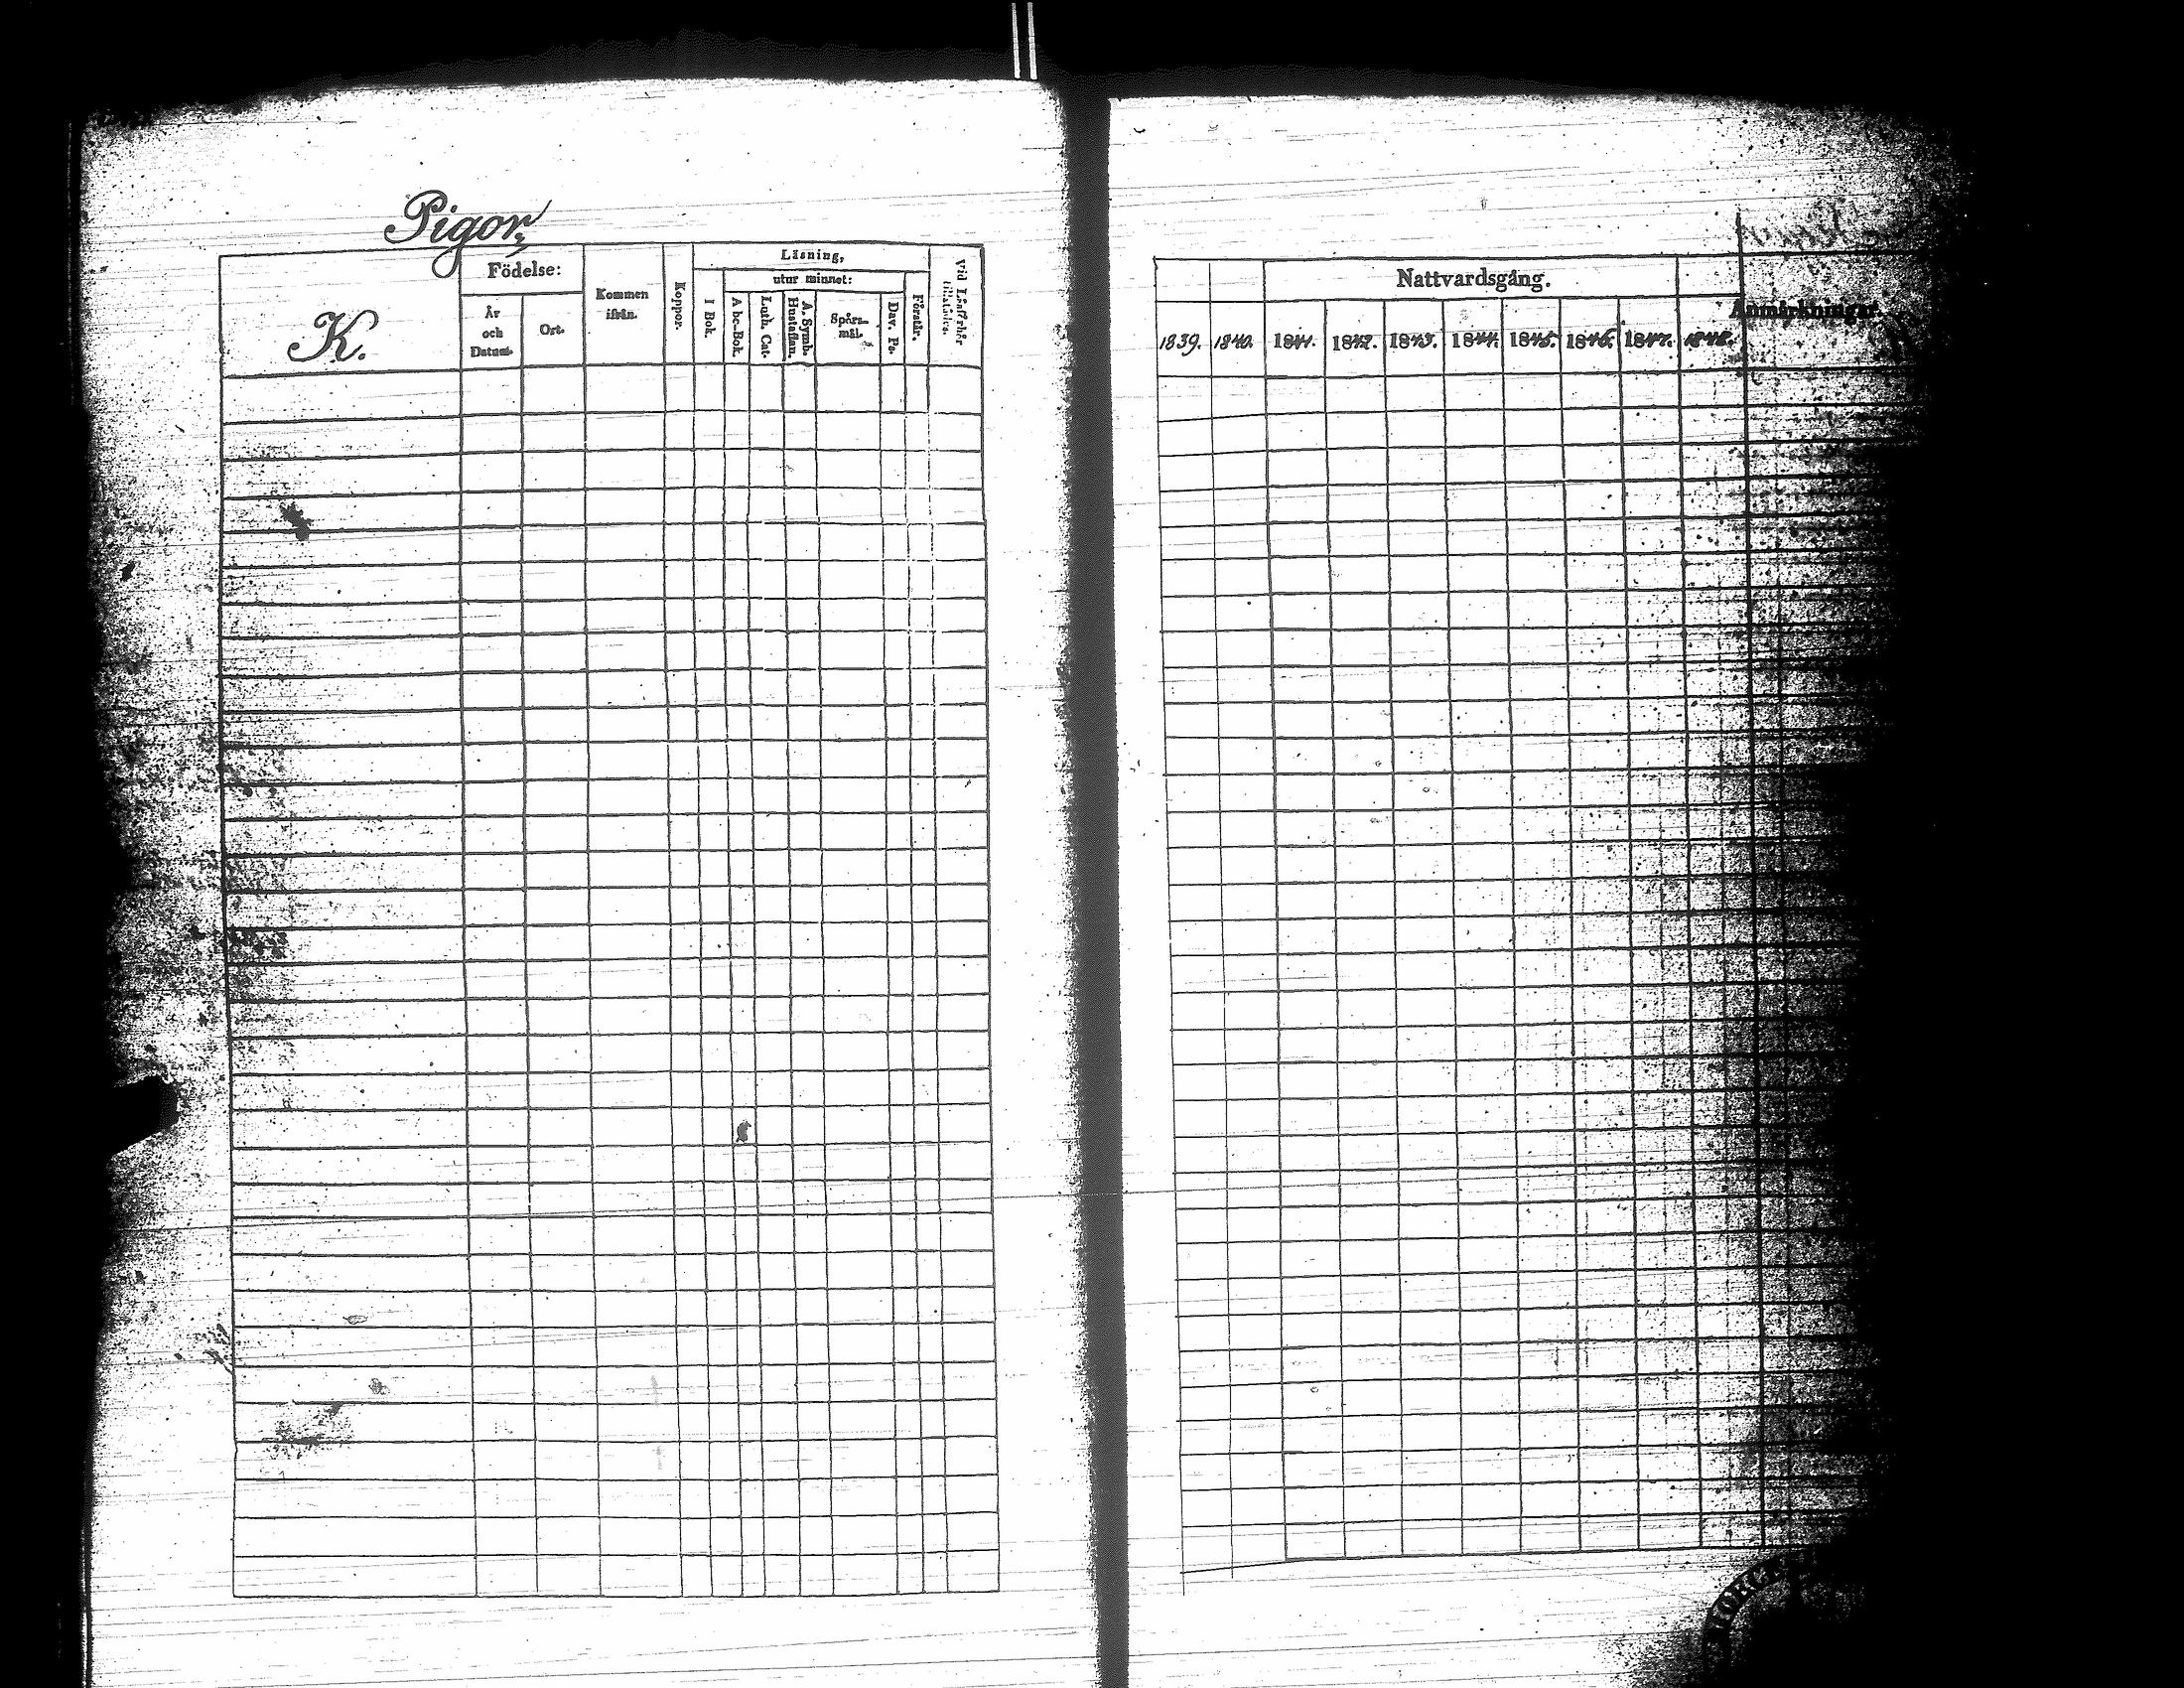 Pigor,
K.
Födelse:
År
och
Datum.
Ort.
Kommen
ifrån.
Koppor.
Läsning,
utur minnet:
I Bok.
A bc-Bok.
Luth. Cat.
A. Symb.
Hustaflan.
Spörs-
mål.
Dav. Ps.
Förstår.
Vid Läsförhör
Nattvardsgång.
1839. 1840. 1841. 1842. 1843. 1844. 1845. 1846. 1847. 1848.
Anmärkningar.